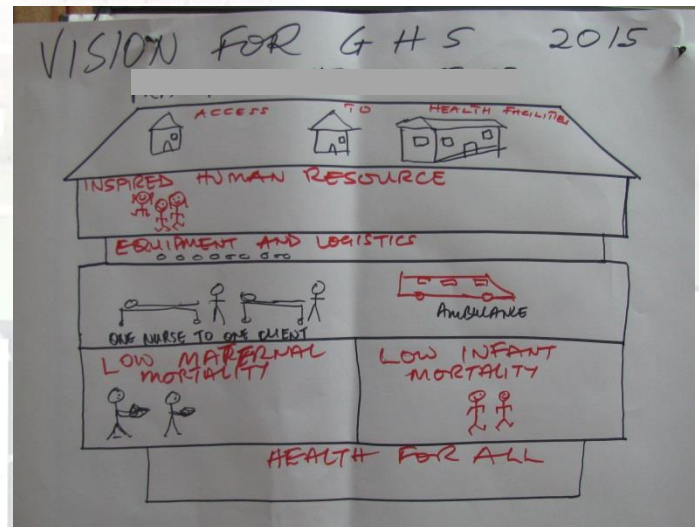 VISION FOR GHS 2015
ACCESS TO HEALTH FACILITIES
INSPIRED HUMAN RESOURCE
EQUIPMENT AND LOGISTICS
AMBULANCE
ONE NURSE TO ONE CLIENT
LOW MATERNAL
MORTALITY
LOW INFANT
MORTALITY
HEALTH FOR ALL